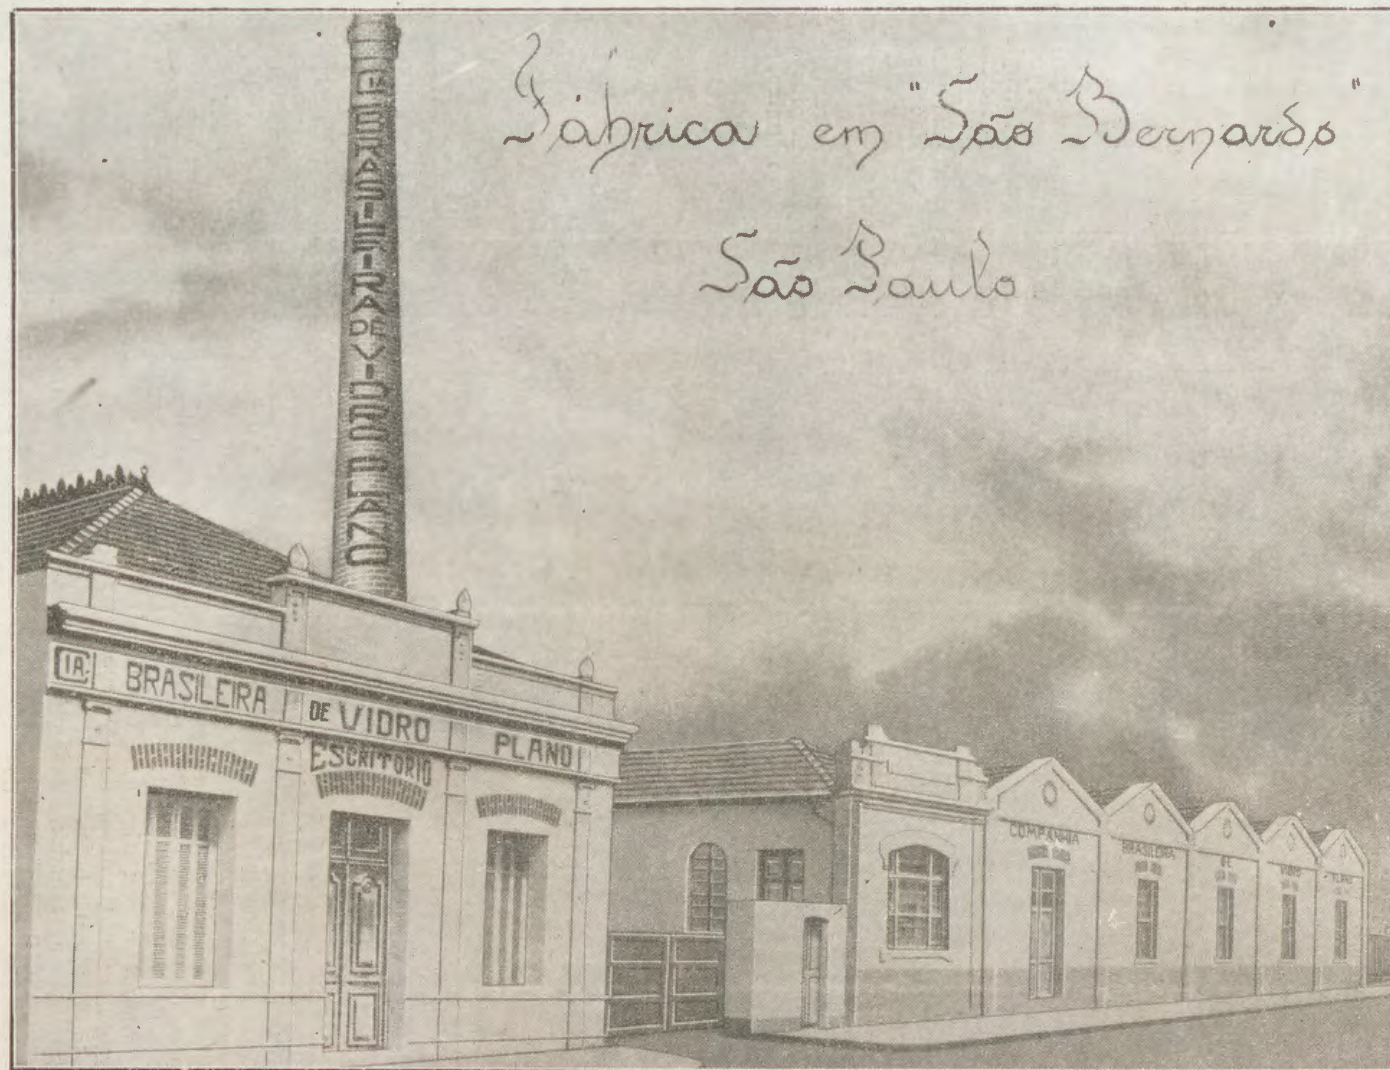 Fábrica em "São Bernardo"
São Paulo
CIA BRASILEIRA DE VIDRO PLANO
CIA. BRASILEIRA DE VIDRO PLANO
ESCRITORIO
COMPANHIA BRASILEIRA DE VIDRO PLANO